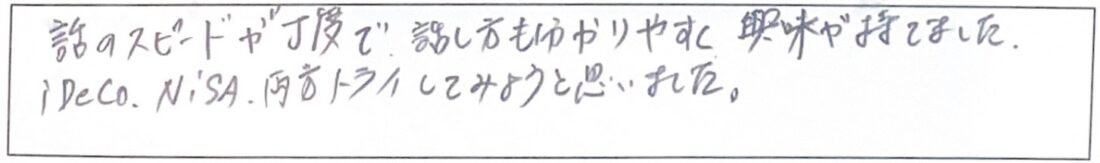 話のスピードが丁度で、話し方も分かりやすく興味が持てました.
iDeCo、NiSA、両方トライしてみようと思いました。